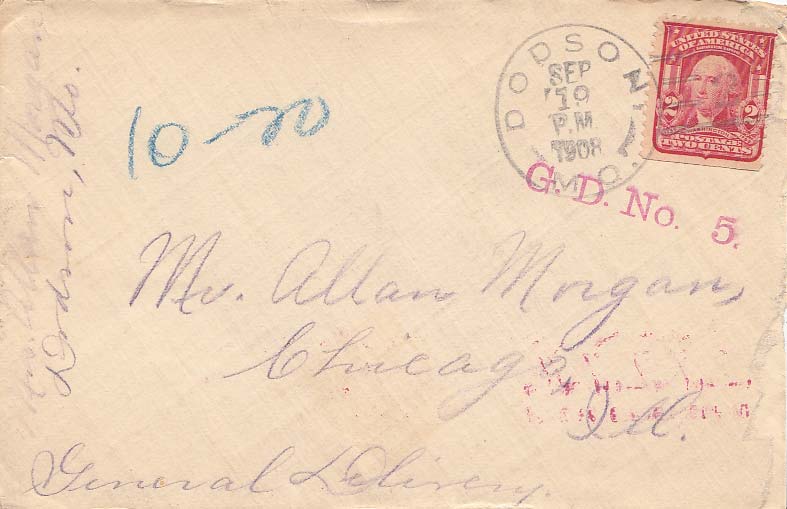 Allan Morgan
Dodson, Mo.
10-20
DODSON
SEP
19
P.M.
1908
MO.
UNITED STATES
OF AMERICA
2 2
POSTAGE
TWO CENTS
G. D. No. 5.
Mr. Allan Morgan,
Chicago,
Ill.
General Delivery.